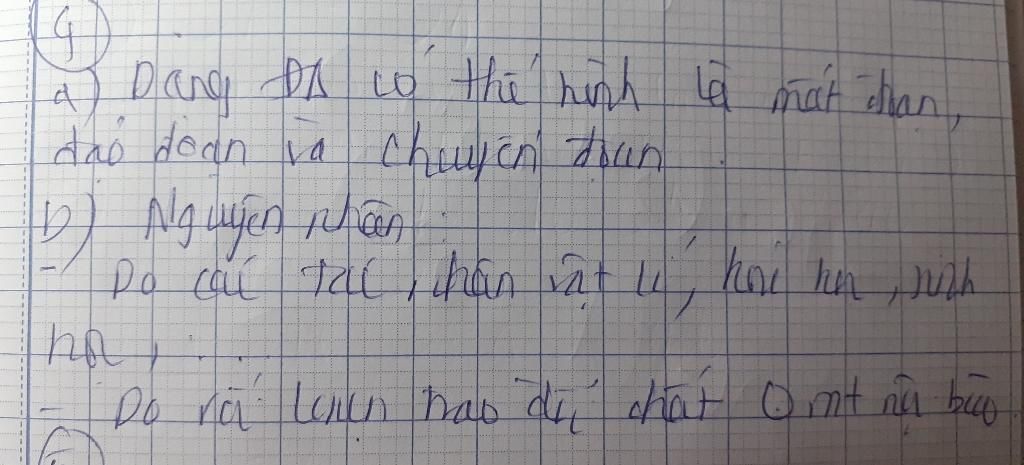 4
a) Dạng ĐB có thể hình là mất đoạn,
đảo đoạn và chuyển đoạn.
b) Nguyên nhân:
- Do các tác nhân vật lí, hoá học, sinh
học, ...
- Do rối loạn trao đổi chất ở mt nội bào